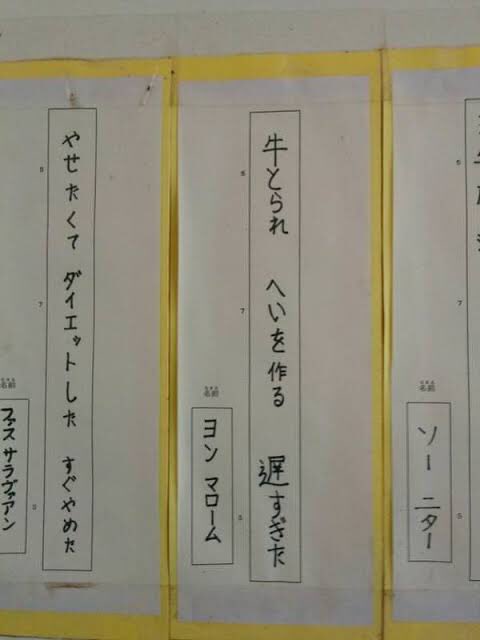 5 7 5
名前
ソー ニター
牛とられ へいを作る 遅すぎた
5 7 5
名前
ヨン マローム
やせたくて ダイエットした すぐやめた
5 7 5
名前
ファス サラヴァアン